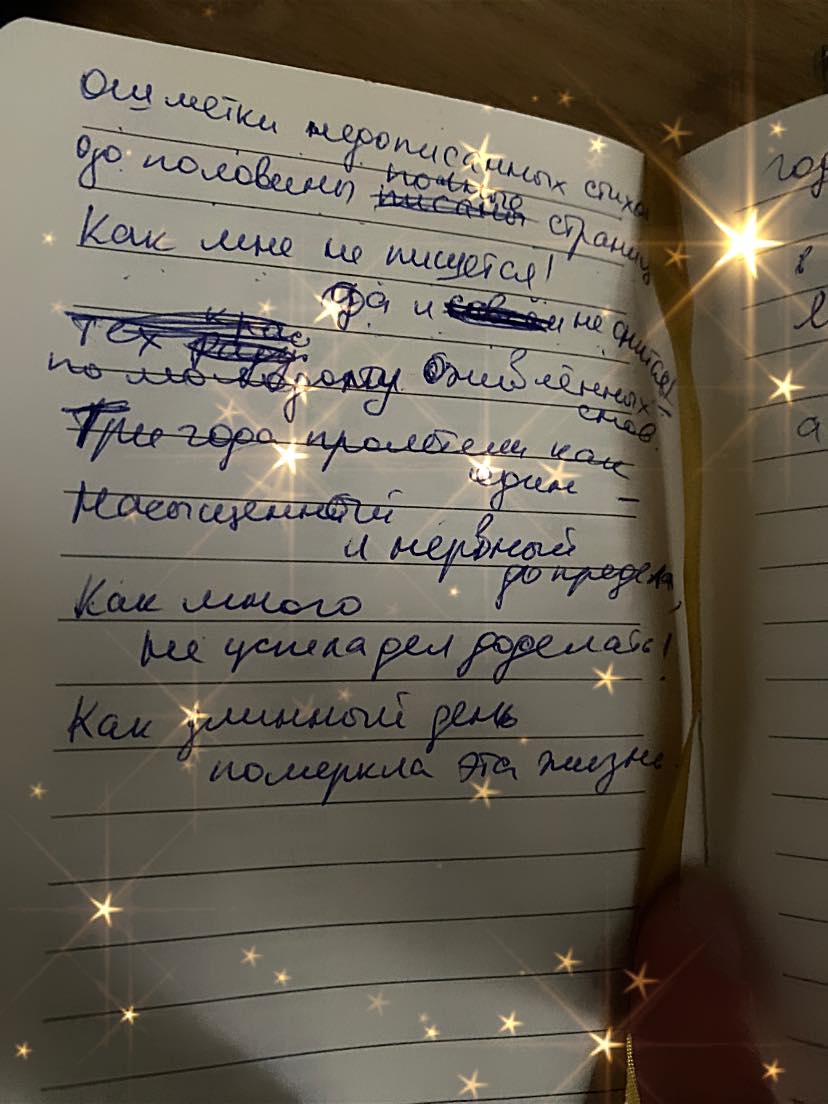 Ошметки недописанных стихов
до половины полного писаны страниц
Как мне не пишется!
Да и не снится!
Тех крас
по молодому оживлённых –
снов.
Три года пролетели как
один –
Насыщенный
и нервный
до предела,
Как много
не успела дел доделать!
Как длинный день
померкла эта жизнь.
год
в
а